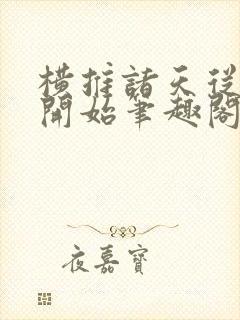 橫推諸天從
開始筆趣閣
夜嘉寶